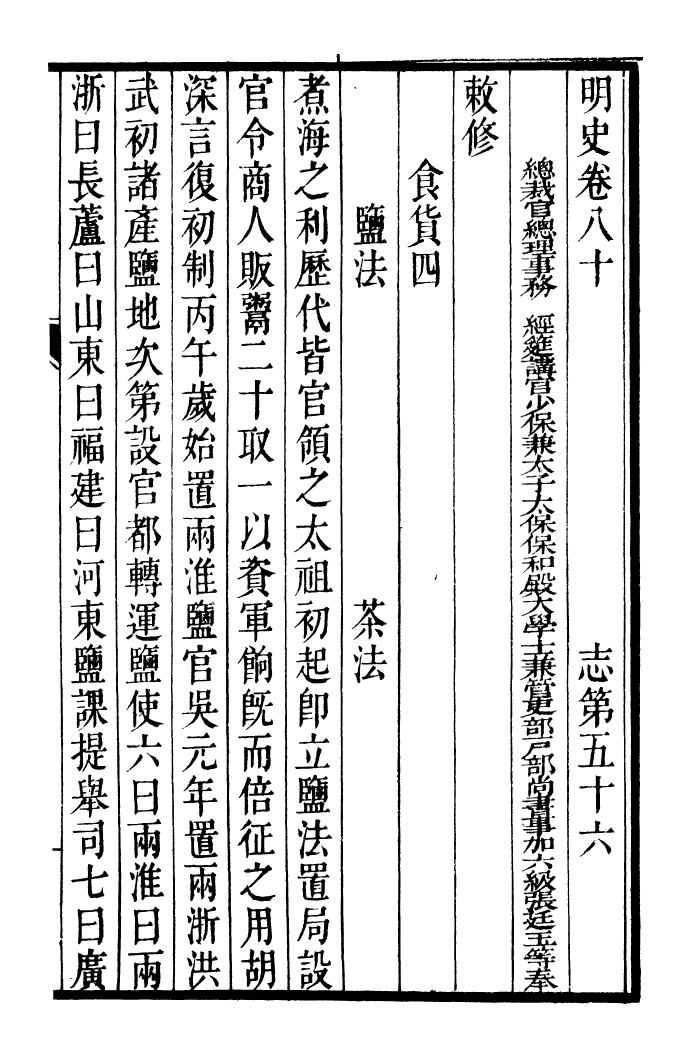 明史卷八十　志第五十六
總裁官總理事務　經筵講官少保兼太子太保保和殿大學士兼管吏部戶部尚書事加六級張廷玉等奉
敕修
食貨四
鹽法　茶法
煮海之利歷代皆官領之太祖初起卽立鹽法置局設
官令商人販鬻二十取一以資軍餉旣而倍征之用胡
深言復初制丙午歲始置兩淮鹽官吳元年置兩浙洪
武初諸產鹽地次第設官都轉運鹽使六曰兩淮曰兩
浙曰長蘆曰山東曰福建曰河東鹽課提舉司七曰廣